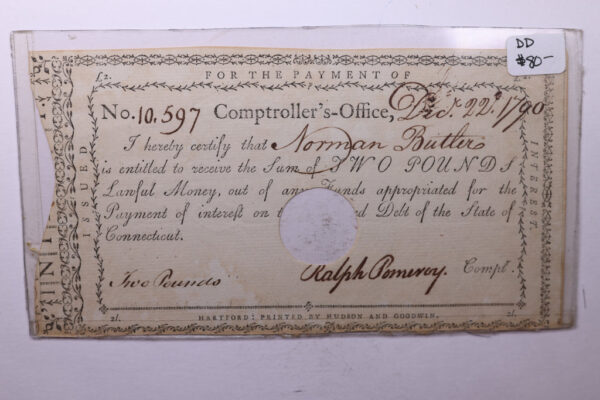 DD
$80-
£2. FOR THE PAYMENT OF
No. 10,597 Comptroller's-Office, Decr. 22d. 1790
I hereby certify that Norman Butler
is entitled to receive the Sum of TWO POUNDS
Lawful Money, out of any Funds appropriated for the
Payment of interest on Debt of the State of
Connecticut.
Two Pounds Ralph Pomeroy. Compt.
2l. HARTFORD: PRINTED BY HUDSON AND GOODWIN. 2l.
ISSUED
INTEREST.